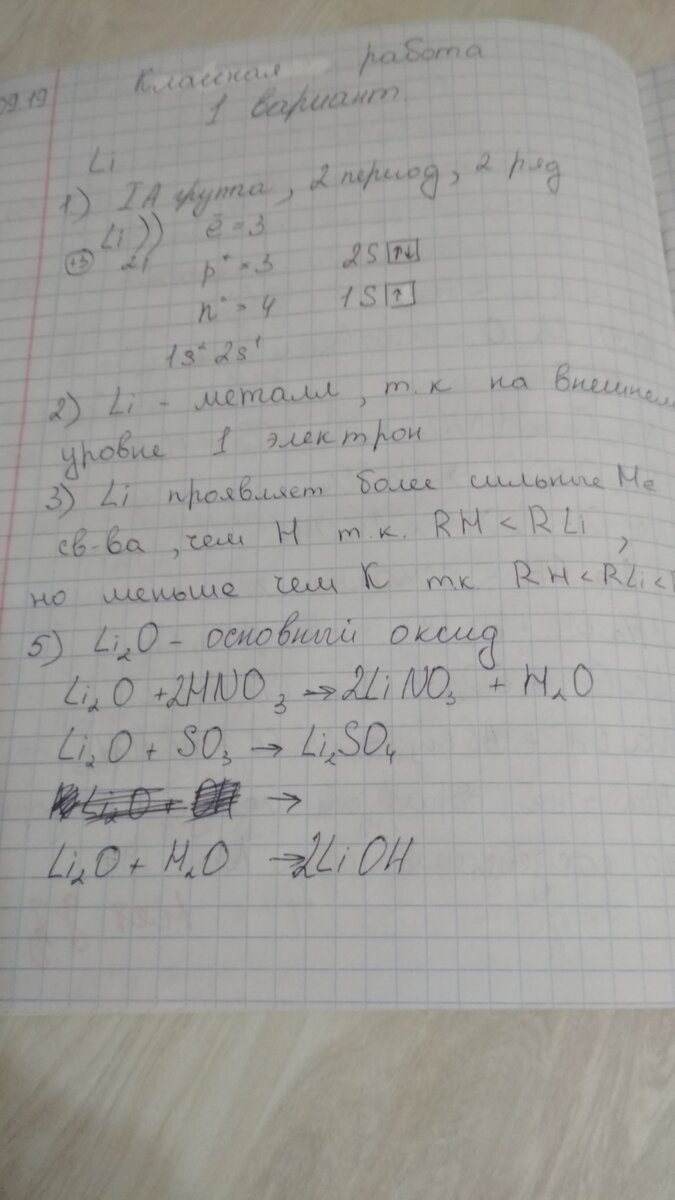 09.19
Классная работа
1 вариант.
Li
1) IA группа, 2 период, 2 ряд
Li )) ē = 3
+3 2 1 p⁺ = 3 2S ↑↓
n° = 4 1S ↑
1s² 2s¹
2) Li - металл, т.к на внешнем
уровне 1 электрон
3) Li проявляет более сильные Ме
св-ва, чем H т.к. RH < RLi,
но меньше чем K тк RH < RLi <
5) Li₂O - основный оксид
Li₂O + 2HNO₃ → 2LiNO₃ + H₂O
Li₂O + SO₃ → Li₂SO₄
→
Li₂O + H₂O → 2LiOH